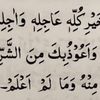 خَيْرِ كُلِّهِ عَاجِلِهِ وَاٰجِلِهِ
وَاَعُوْذُبِكَ مِنَ الشَّرِّ
مِنْهُ وَمَا لَمْ اَعْلَمْ